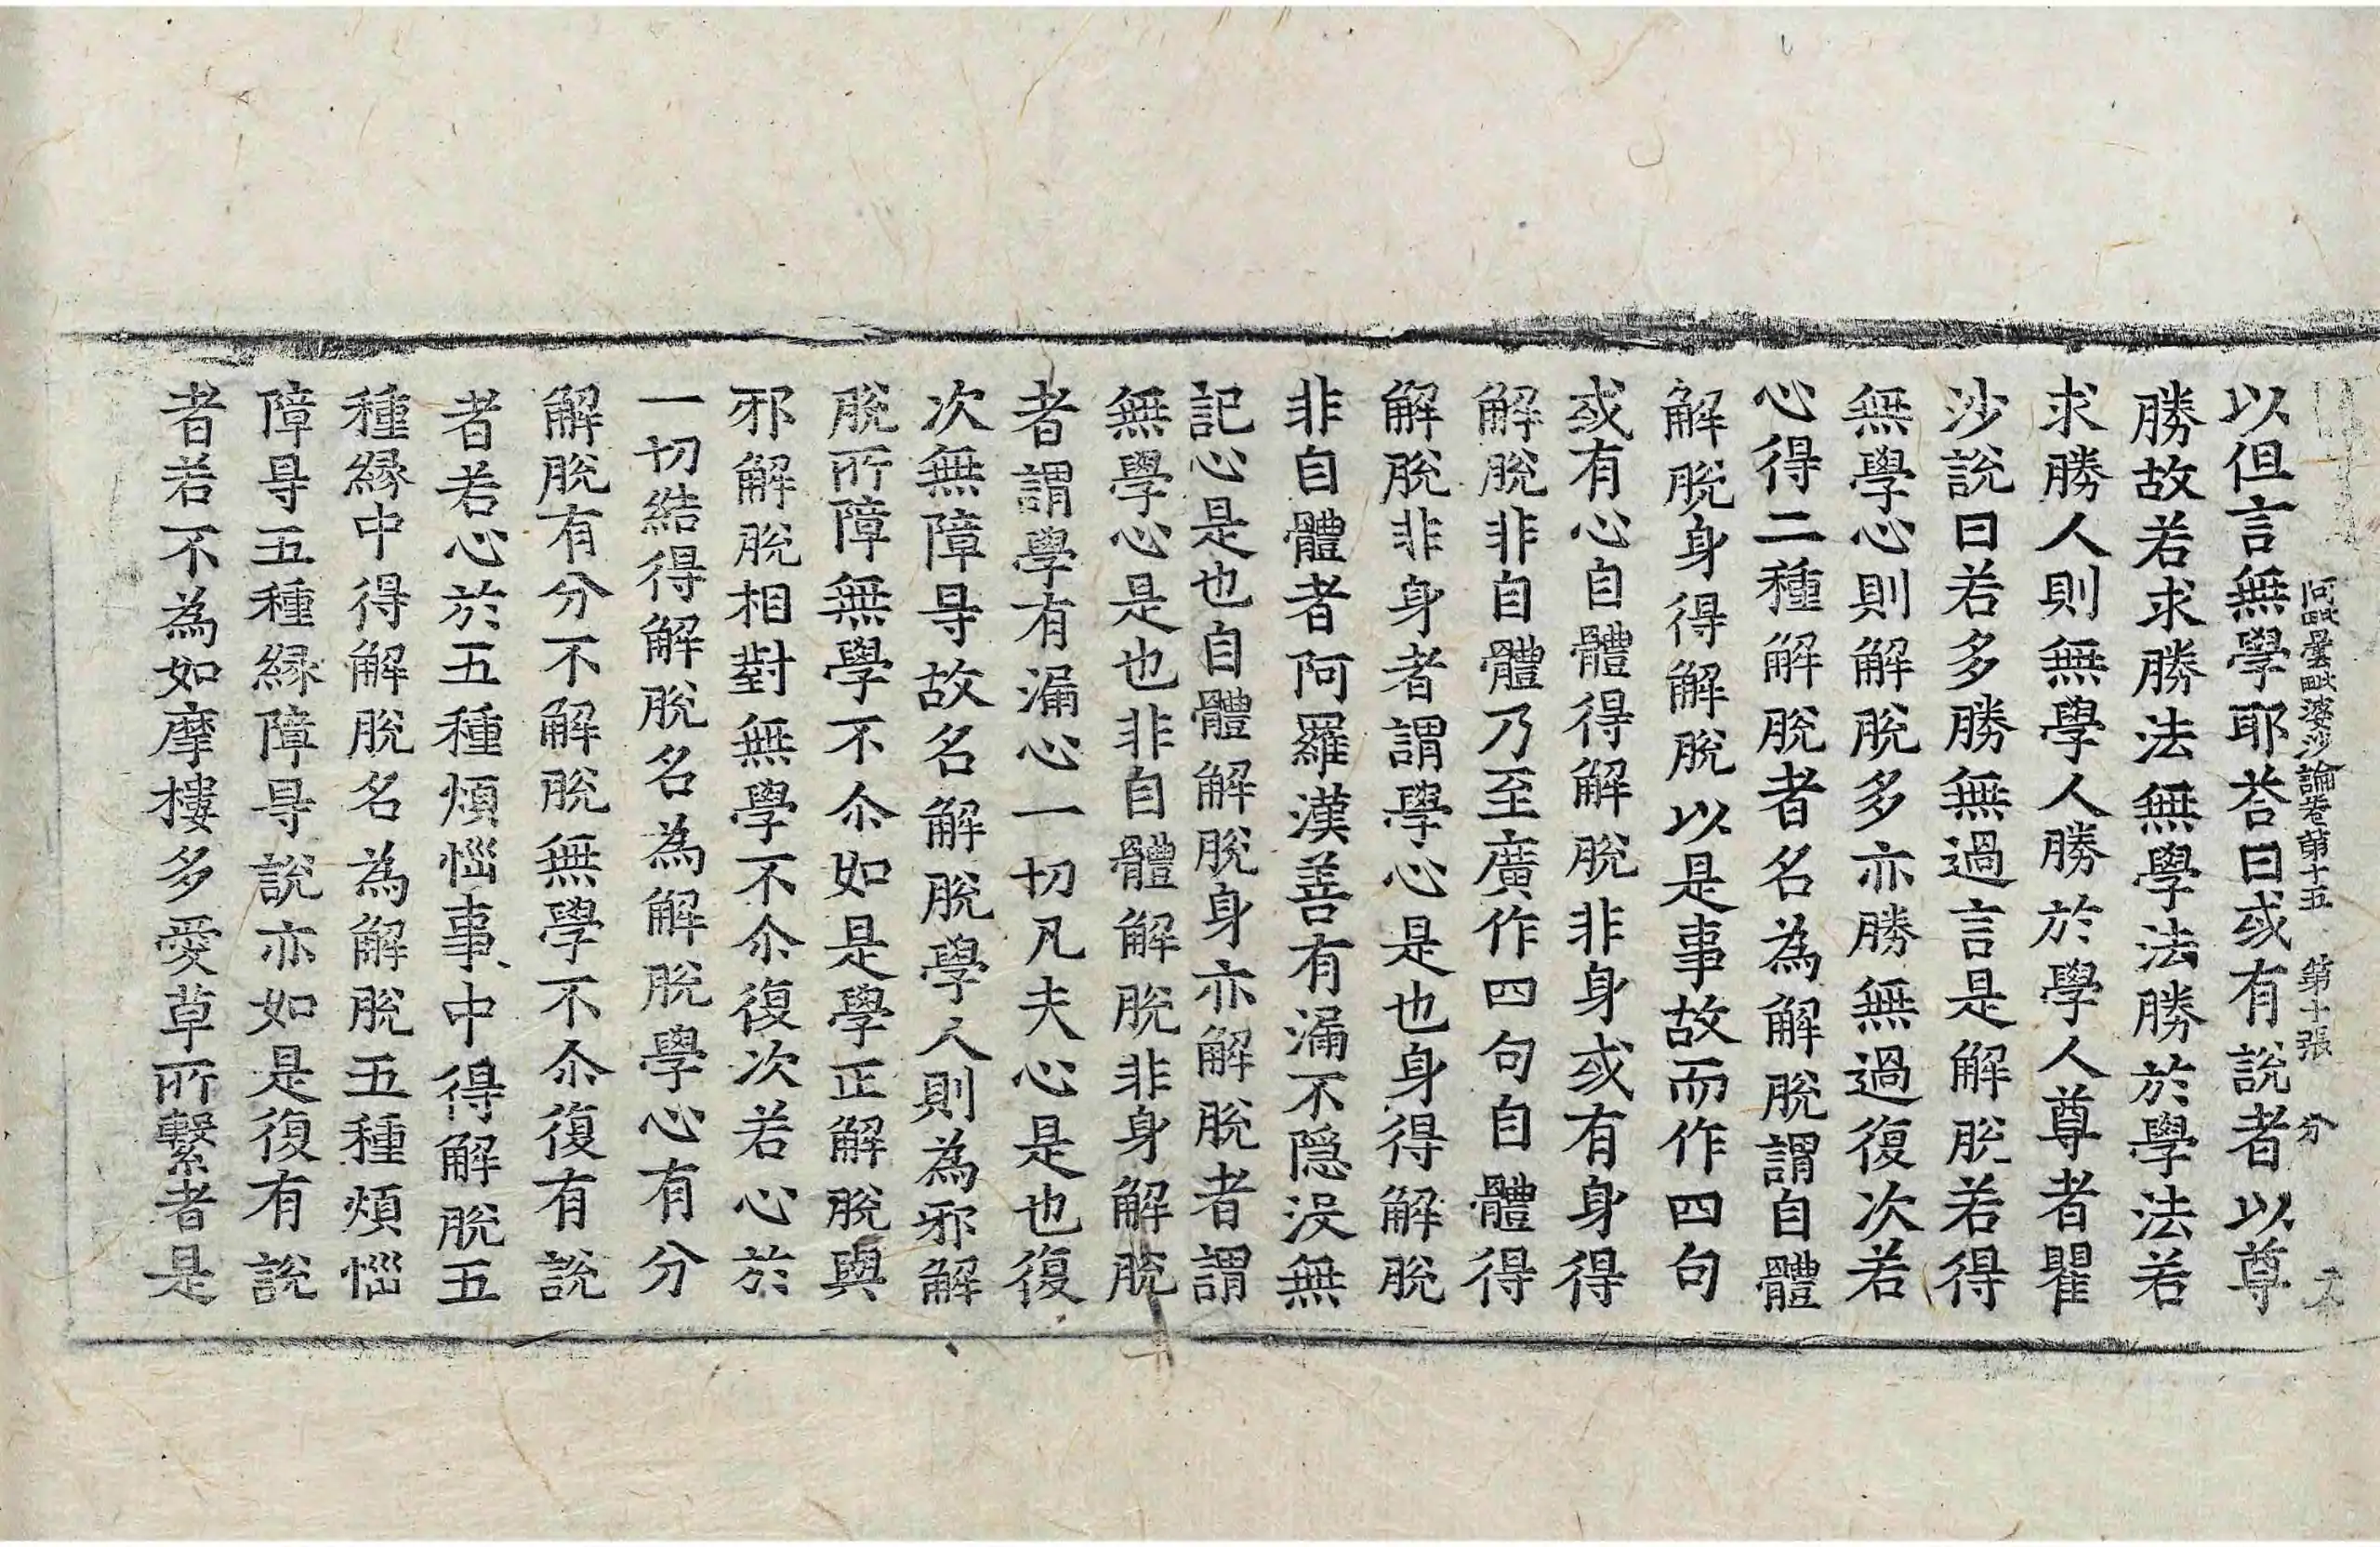 阿毗曇毗婆沙論卷第十五　第十張　分
以但言無學耶荅曰或有說者以尊
勝故若求勝法無學法勝於學法若
求勝人則無學人勝於學人尊者瞿
沙說曰若多勝無過言是解脫若得
無學心則解脫多亦勝無過復次若
心得二種解脫者名為解脫謂自體
解脫身得解脫以是事故而作四句
或有心自體得解脫非身或有身得
解脫非自體乃至廣作四句自體得
解脫非身者謂學心是也身得解脫
非自體者阿羅漢善有漏不隱沒無
記心是也自體解脫身亦解脫者謂
無學心是也非自體解脫非身解脫
者謂學有漏心一切凡夫心是也復
次無障㝵故名解脫學人則為邪解
脫所障無學不尒如是學正解脫與
邪解脫相對無學不尒復次若心於
一切結得解脫名為解脫學心有分
解脫有分不解脫無學不尒復有說
者若心於五種煩惱事中得解脫五
種緣中得解脫名為解脫五種煩惱
障㝵五種緣障㝵說亦如是復有說
者若不為如摩樓多愛草所繫者是